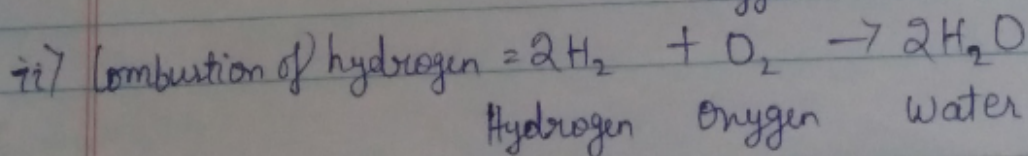 ii) Combustion of hydrogen = 2H₂ + O₂ → 2H₂O
Hydrogen Oxygen Water